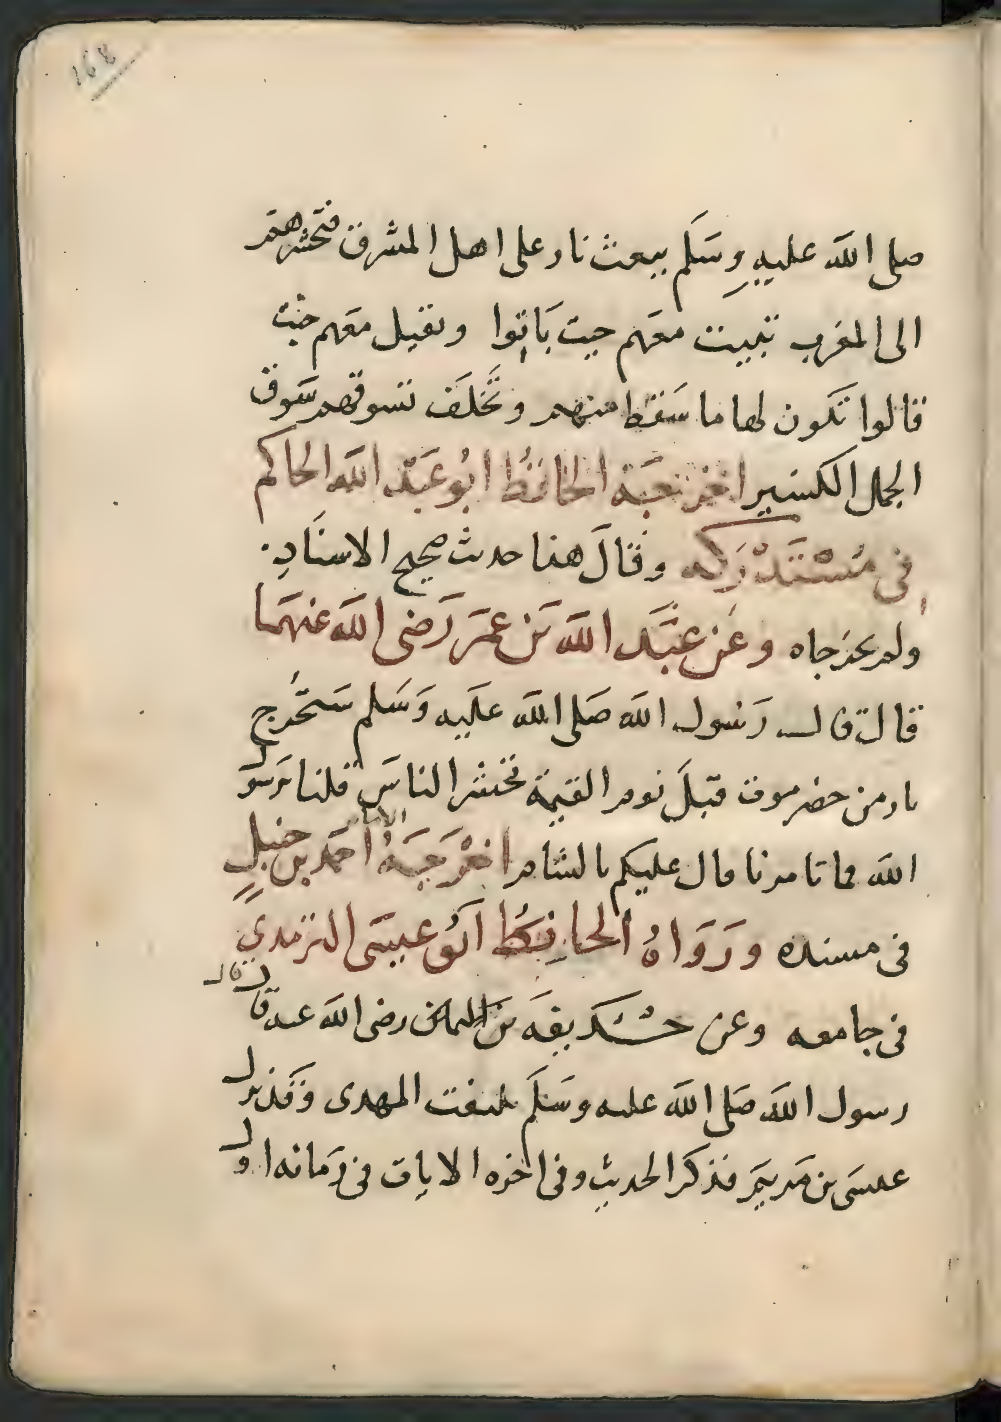 ١٦٨
صلى الله عليه وسلم يبعث نار على اهل المشرق فتحشرهم
الى المغرب تبيت معهم حيث باتوا وتقيل معهم حيث
قالوا تكون لها ما سقط منهم وتخلف تسوقهم سوق
الجمل الكسير اخرجه الحافظ ابو عبد الله الحاكم
في مستدركه وقال هذا حديث صحيح الاسناد
ولم يخرجاه وعن عبد الله بن عمر رضي الله عنهما
قال قال رسول الله صلى الله عليه وسلم ستخرج
نار من حضرموت قبل يوم القيمة تحشر الناس قلنا يرسول
الله فما تامرنا قال عليكم بالشام اخرجه الامام احمد بن حنبل
في مسنده ورواه الحافظ ابو عيسى الترمذي
في جامعه وعن حذيفة بن اليمان رضي الله عنه قال قال
رسول الله صلى الله عليه وسلم يلتفت المهدى وقد نزل
عيسى بن مريم فذكر الحديث وفي اخره الايات في زمانه اول